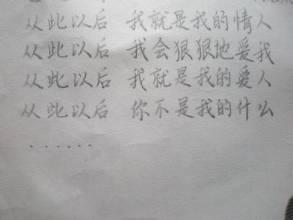 从此以后 我就是我的情人
从此以后 我会狠狠地爱我
从此以后 我就是我的爱人
从此以后 你不是我的什么
......